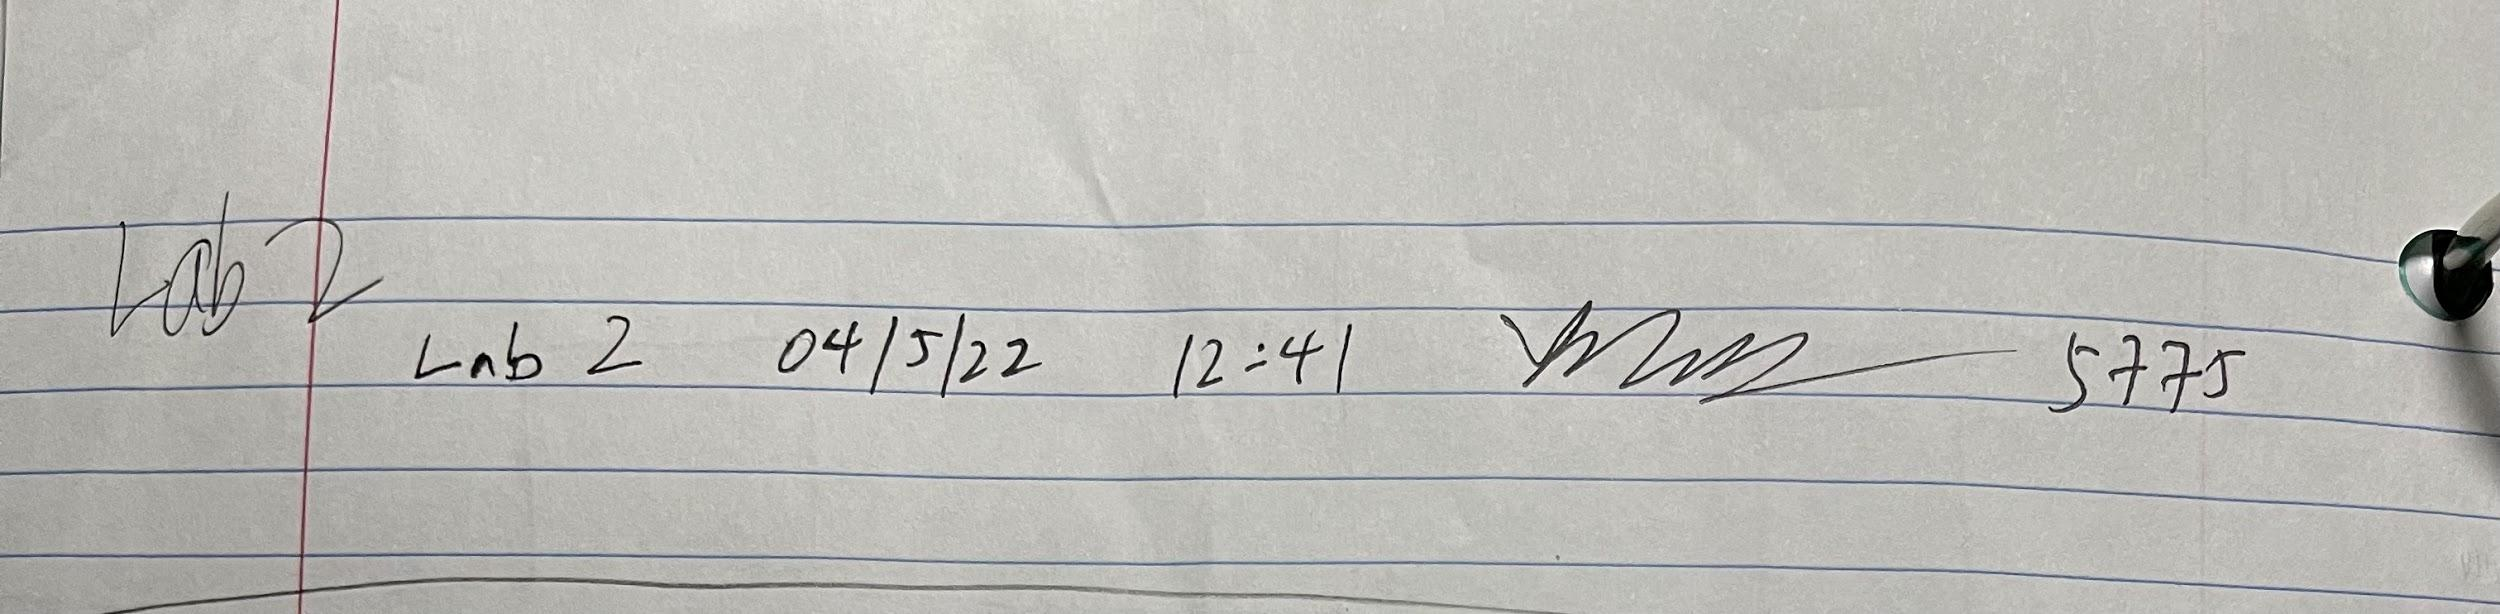 Lab 2
Lab 2 04/5/22 12:41 5775